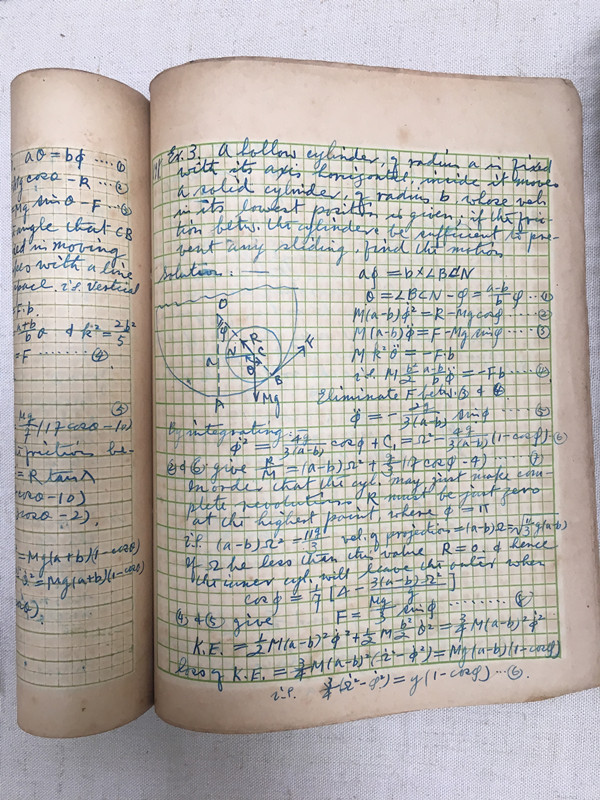 aθ = bϕ ....①
Mg cosθ - R ...②
Mg sinθ - F ...③
angle that CB
ed in moving
kes with a line
i.e. vertical
F.b.
a+b/b θ & k² = 2b²/5
= F ...... ④
⑤
Mg/7 (17 cosθ - 10)
friction be-
= R tanλ
cosθ - 10)
cosθ - 2).
= Mg(a+b)(1-cosθ)
² = Mg(a+b)(1-cosθ)
Ex. 3. A hollow cylinder, of radius a is fixed
with its axis horizontal; inside it moves
a solid cylinder, of radius b, whose vel.
in its lowest position is given; if the fric-
tion betw. the cylinders be sufficient to pre-
vent any sliding, find the motion
Solution: —
O
ϕ
N
R
C
θ
F
B
A
Mg
aϕ = b × ∠BCN
θ = ∠BCN - ϕ = a-b/b ϕ ...①
M(a-b)ϕ̇² = R - Mg cosϕ ...②
M(a-b)ϕ̈ = F - Mg sinϕ ...③
M k² θ̈ = -F.b
i.e. M b²/2 a-b/b ϕ̈ = -Fb ...④
Eliminate F betw. ③ & ④
ϕ̈ = - 2g/3(a-b) sinϕ ...... ⑤
By integrating: —
ϕ̇² = 4g/3(a-b) cosϕ + C₁ = Ω² - 4g/3(a-b) (1-cosϕ) ⑥
② & ⑥ give R/M = (a-b)Ω² + g/3 (7 cosϕ - 4) ..... ⑦
In order that the cyl. may just make com-
plete revolutions, R must be just zero
at the highest point where ϕ = π
i.e. (a-b)Ω² = 11g/3 vel. of projection = (a-b)Ω = √11/3 g(a-b)
If Ω be less than this value, R = 0, & hence
the inner cyl. will leave the outer when
cosϕ = 1/7 [4 - 3(a-b)Ω²/g]
④ & ⑤ give F = Mg/3 sinϕ ......... ⑧
K.E. = ½M(a-b)²ϕ̇² + ½M b²/2 θ̇² = ¾M(a-b)²ϕ̇²
Loss of K.E. = ¾M(a-b)²(Ω² - ϕ̇²) = Mg(a-b)(1-cosϕ)
i.e. ¾(Ω² - ϕ̇²) = g(1-cosϕ) ...⑥.